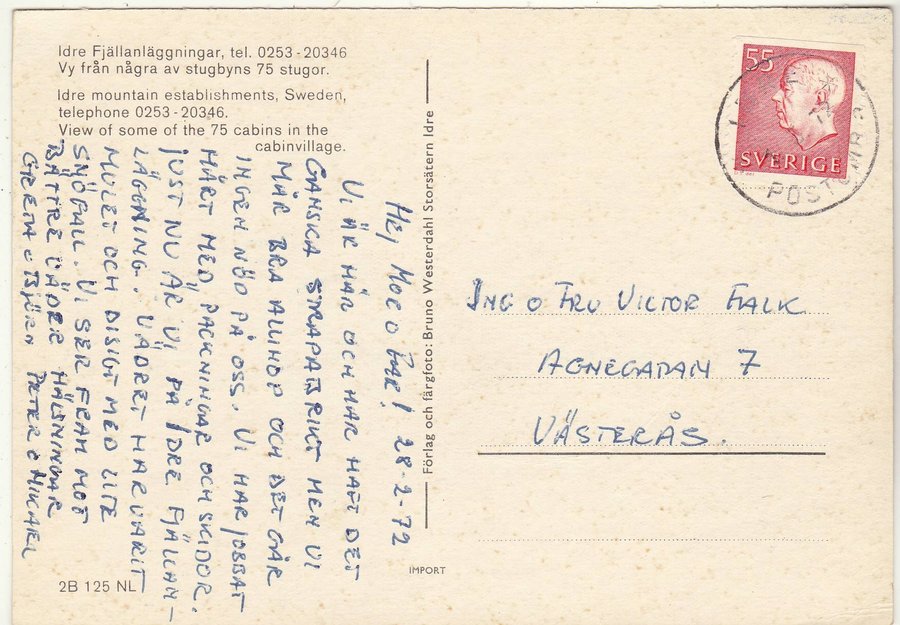 Idre Fjällanläggningar, tel. 0253-20346
Vy från några av stugbyns 75 stugor.
Idre mountain establishments, Sweden,
telephone 0253-20346.
View of some of the 75 cabins in the
cabinvillage.
HEJ MOR O FAR! 28-2-72
VI ÄR HÄR OCH HAR HAFT DET
GANSKA STRAPATSRIKT MEN VI
MÅR BRA ALLIHOP OCH DET GÅR
INGEN NÖD PÅ OSS. VI HAR JOBBAT
HÅRT MED PACKNINGAR OCH SKIDOR.
JUST NU ÄR VI PÅ IDRE FJÄLLAN-
LÄGGNING. VÄDRET HAR VARIT
MULET OCH DISIGT MED LITE
SNÖFALL. VI SER FRAM MOT
BÄTTRE VÄDER HÄLSNINGAR
GRETA o BJÖRN PETER o MIKAEL
2B 125 NL
Förlag och färgfoto: Bruno Westerdahl Storsätern Idre
IMPORT
55
SVERIGE
ING O FRU VICTOR FALK
AGNEGATAN 7
VÄSTERÅS.